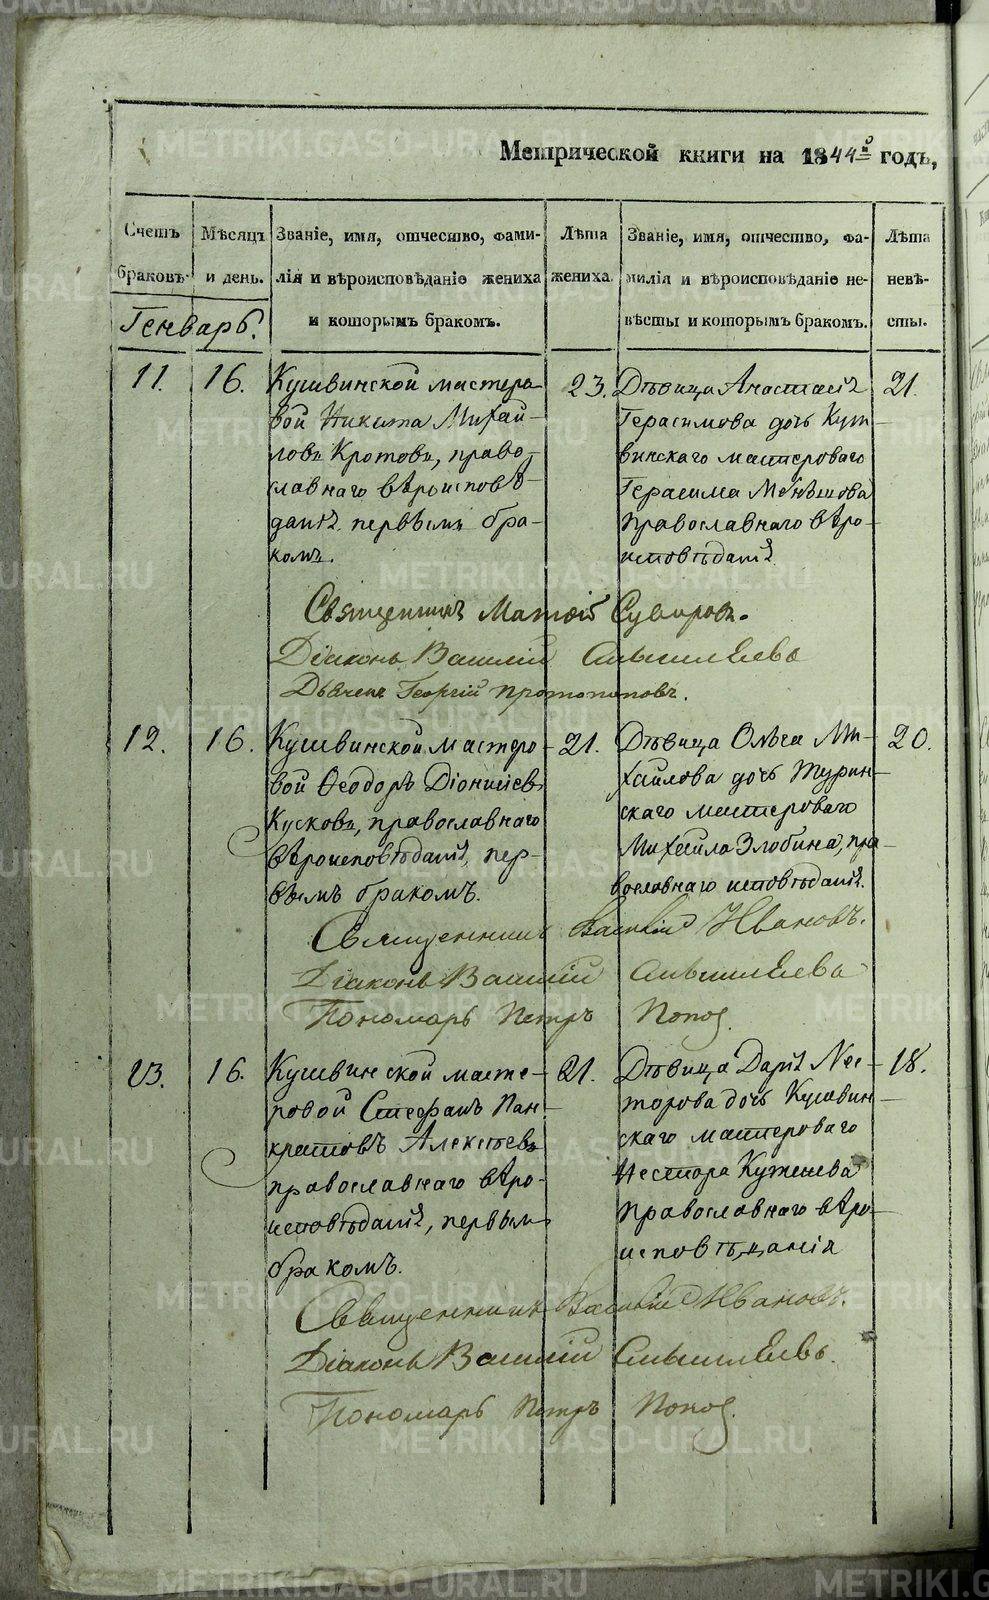 Метрической книги на 1844й годъ,
Счетъ браковъ.
Мѣсяцъ и день.
Званіе, имя, отчество, фами-
лія и вѣроисповѣданіе жениха
и которымъ бракомъ.
Лѣта жениха.
Званіе, имя, отчество, фа-
милія и вѣроисповѣданіе не-
вѣсты и которымъ бракомъ.
Лѣта невѣ-
сты.
Генварь.
11. 16.
Кушвинской мастеро-
вой Никита Михай-
ловъ Кротовъ, право-
славнаго вѣроисповѣ-
данія первымъ бра-
комъ.
23.
Дѣвица Анастасія
Герасимова дочь Куш-
винскаго мастероваго
Герасима
православнаго вѣро-
исповѣданія
21.
Священникъ Матѳій
Діаконъ Василій
Дьячекъ Георгій Протопоповъ.
12. 16.
Кушвинской мастеро-
вой Ѳеодоръ Діонисіевъ
Кусковъ, православнаго
вѣроисповѣданія, пер-
вымъ бракомъ.
21.
Дѣвица Ольга Ми-
хайлова дочь Турин-
скаго мастероваго
Михаила Злобина, пра-
вославнаго исповѣданія.
20.
Священникъ Василій Ивановъ.
Діаконъ Василій
Пономарь Петръ Попов
13. 16.
Кушвинской масте-
ровой Стефанъ Пан-
кратовъ Алексѣевъ
православнаго вѣро-
исповѣданія, первымъ
бракомъ.
21.
Дѣвица Дарія Нес-
торова дочь Кушвин-
скаго мастероваго
Нестора
православнаго вѣро-
исповѣданія
18.
Священникъ Василій Ивановъ.
Діаконъ Василій
Пономарь Петръ Попов
METRIKI.GASO-URAL.RU